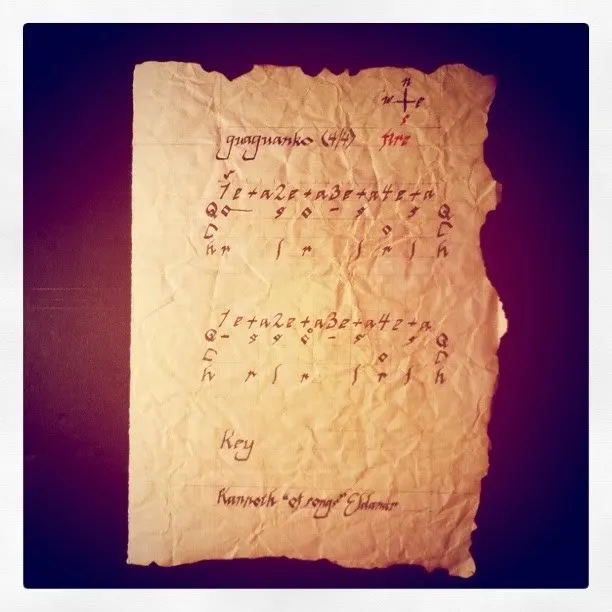 n
w e
s
guaguanko (4/4) fire
1 e + a 2 e + a 3 e + a 4 e + a
Q o — s o - s s Q
C o C
h r l r l r l h
1 e + a 2 e + a 3 e + a 4 e + a
Q - s s o - s s Q
C o C
h r l r l r l h
Key
"of songs"